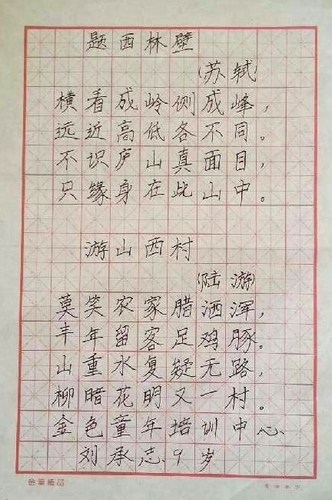 题西林壁
(苏轼)
横看成岭侧成峰，
远近高低各不同。
不识庐山真面目，
只缘身在此山中。
游山西村
(陆游)
莫笑农家腊洒浑，
丰年留客足鸡豚。
山重水复疑无路，
柳暗花明又一村。
金色童年培训中心
刘承志9岁